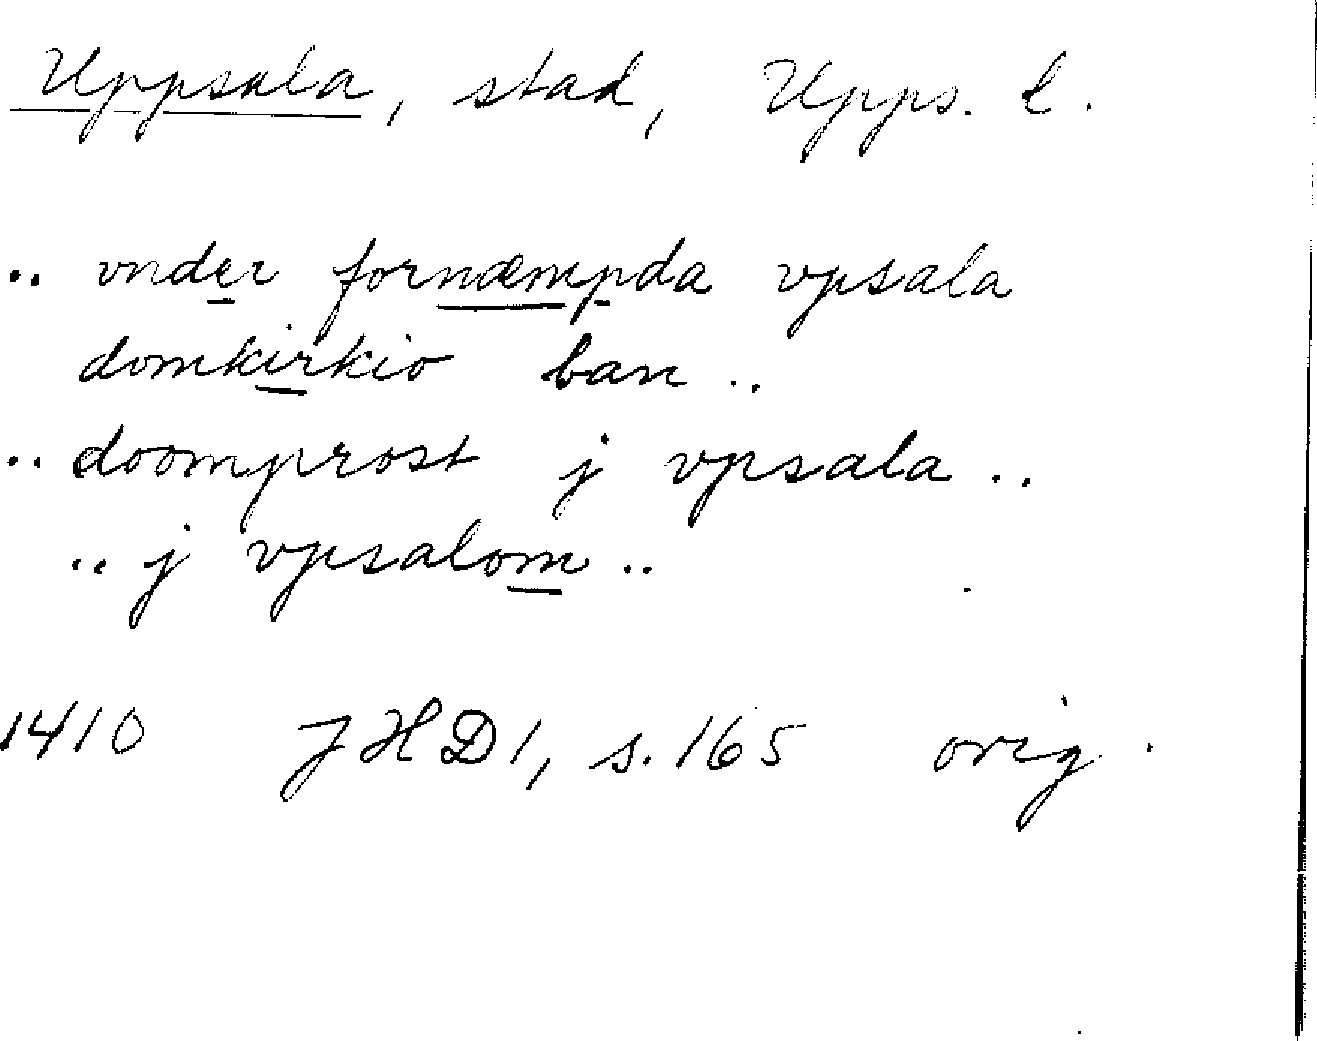 Uppsala, stad, Upps. l.
.. vnder fornæmpda vpsala
domkirkio ban ..
.. doomprost j vpsala ..
.. j vpsalom ..
1410 JHD 1, s. 165 orig.